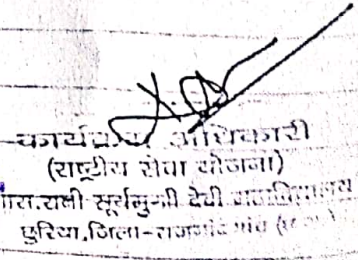 कार्यक्रम अधिकारी
(राष्ट्रीय सेवा योजना)
शास. रानी सूर्यमुखी देवी महाविद्यालय
छुरिया, जिला-राजनांदगांव (छ.ग.)